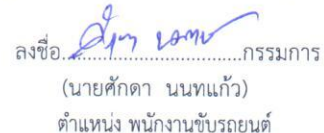 ลงชื่อ..............................กรรมการ
(นายศักดา นนทแก้ว)
ตำแหน่ง พนักงานขับรถยนต์